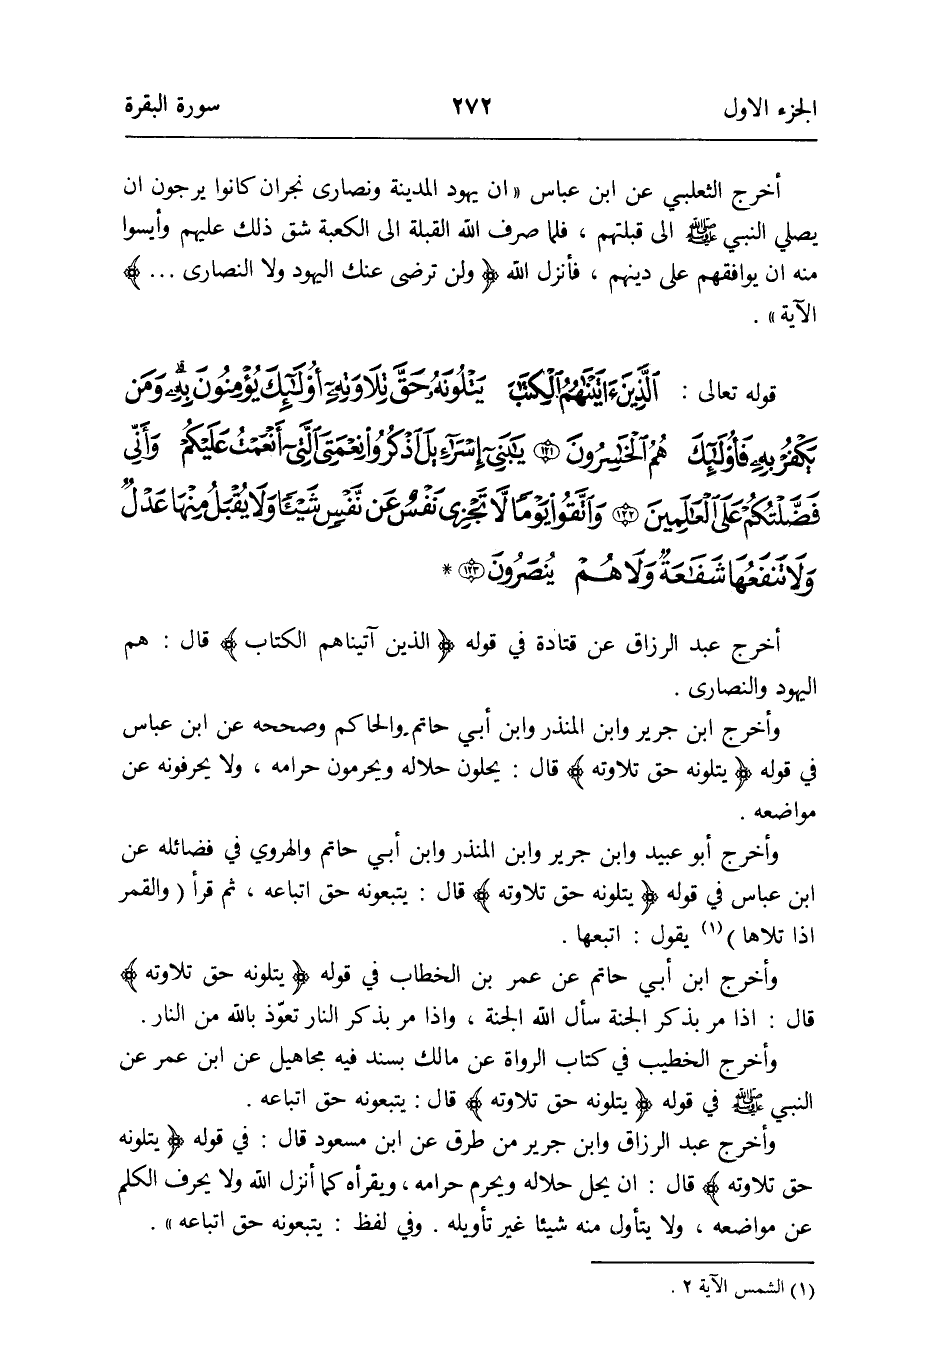 الجزء الاول ٢٧٢ سورة البقرة
أخرج الثعلبي عن ابن عباس « ان يهود المدينة ونصارى نجران كانوا يرجون ان
يصلي النبي ﷺ الى قبلتهم ، فلما صرف الله القبلة الى الكعبة شق ذلك عليهم وأيسوا
منه ان يوافقهم على دينهم ، فأنزل الله ﴿ ولن ترضى عنك اليهود ولا النصارى ... ﴾
الآية » .
قوله تعالى : ٱلَّذِينَ ءَاتَيْنَٰهُمُ ٱلْكِتَٰبَ يَتْلُونَهُۥ حَقَّ تِلَاوَتِهِۦٓ أُوْلَٰٓئِكَ يُؤْمِنُونَ بِهِۦۗ وَمَن
يَكْفُرْ بِهِۦ فَأُوْلَٰٓئِكَ هُمُ ٱلْخَٰسِرُونَ ﴿١٢١﴾ يَٰبَنِىٓ إِسْرَٰٓءِيلَ ٱذْكُرُواْ نِعْمَتِىَ ٱلَّتِىٓ أَنْعَمْتُ عَلَيْكُمْ وَأَنِّى
فَضَّلْتُكُمْ عَلَى ٱلْعَٰلَمِينَ ﴿١٢٢﴾ وَٱتَّقُواْ يَوْمًا لَّا تَجْزِى نَفْسٌ عَن نَّفْسٍ شَيْـًٔا وَلَا يُقْبَلُ مِنْهَا عَدْلٌ
وَلَا تَنفَعُهَا شَفَٰعَةٌ وَلَا هُمْ يُنصَرُونَ ﴿١٢٣﴾ *
أخرج عبد الرزاق عن قتادة في قوله ﴿ الذين آتيناهم الكتاب ﴾ قال : هم
اليهود والنصارى .
وأخرج ابن جرير وابن المنذر وابن أبي حاتم والحاكم وصححه عن ابن عباس
في قوله ﴿ يتلونه حق تلاوته ﴾ قال : يحلون حلاله ويحرمون حرامه ، ولا يحرفونه عن
مواضعه .
وأخرج أبو عبيد وابن جرير وابن المنذر وابن أبي حاتم والهروي في فضائله عن
ابن عباس في قوله ﴿ يتلونه حق تلاوته ﴾ قال : يتبعونه حق اتباعه ، ثم قرأ ( والقمر
اذا تلاها )(١) يقول : اتبعها .
وأخرج ابن أبي حاتم عن عمر بن الخطاب في قوله ﴿ يتلونه حق تلاوته ﴾
قال : اذا مر بذكر الجنة سأل الله الجنة ، واذا مر بذكر النار تعوّذ بالله من النار .
وأخرج الخطيب في كتاب الرواة عن مالك بسند فيه مجاهيل عن ابن عمر عن
النبي ﷺ في قوله ﴿ يتلونه حق تلاوته ﴾ قال : يتبعونه حق اتباعه .
وأخرج عبد الرزاق وابن جرير من طرق عن ابن مسعود قال : في قوله ﴿ يتلونه
حق تلاوته ﴾ قال : ان يحل حلاله ويحرم حرامه ، ويقرأه كما أنزل الله ولا يحرف الكلم
عن مواضعه ، ولا يتأول منه شيئا غير تأويله . وفي لفظ : يتبعونه حق اتباعه » .
(١) الشمس الآية ٢ .